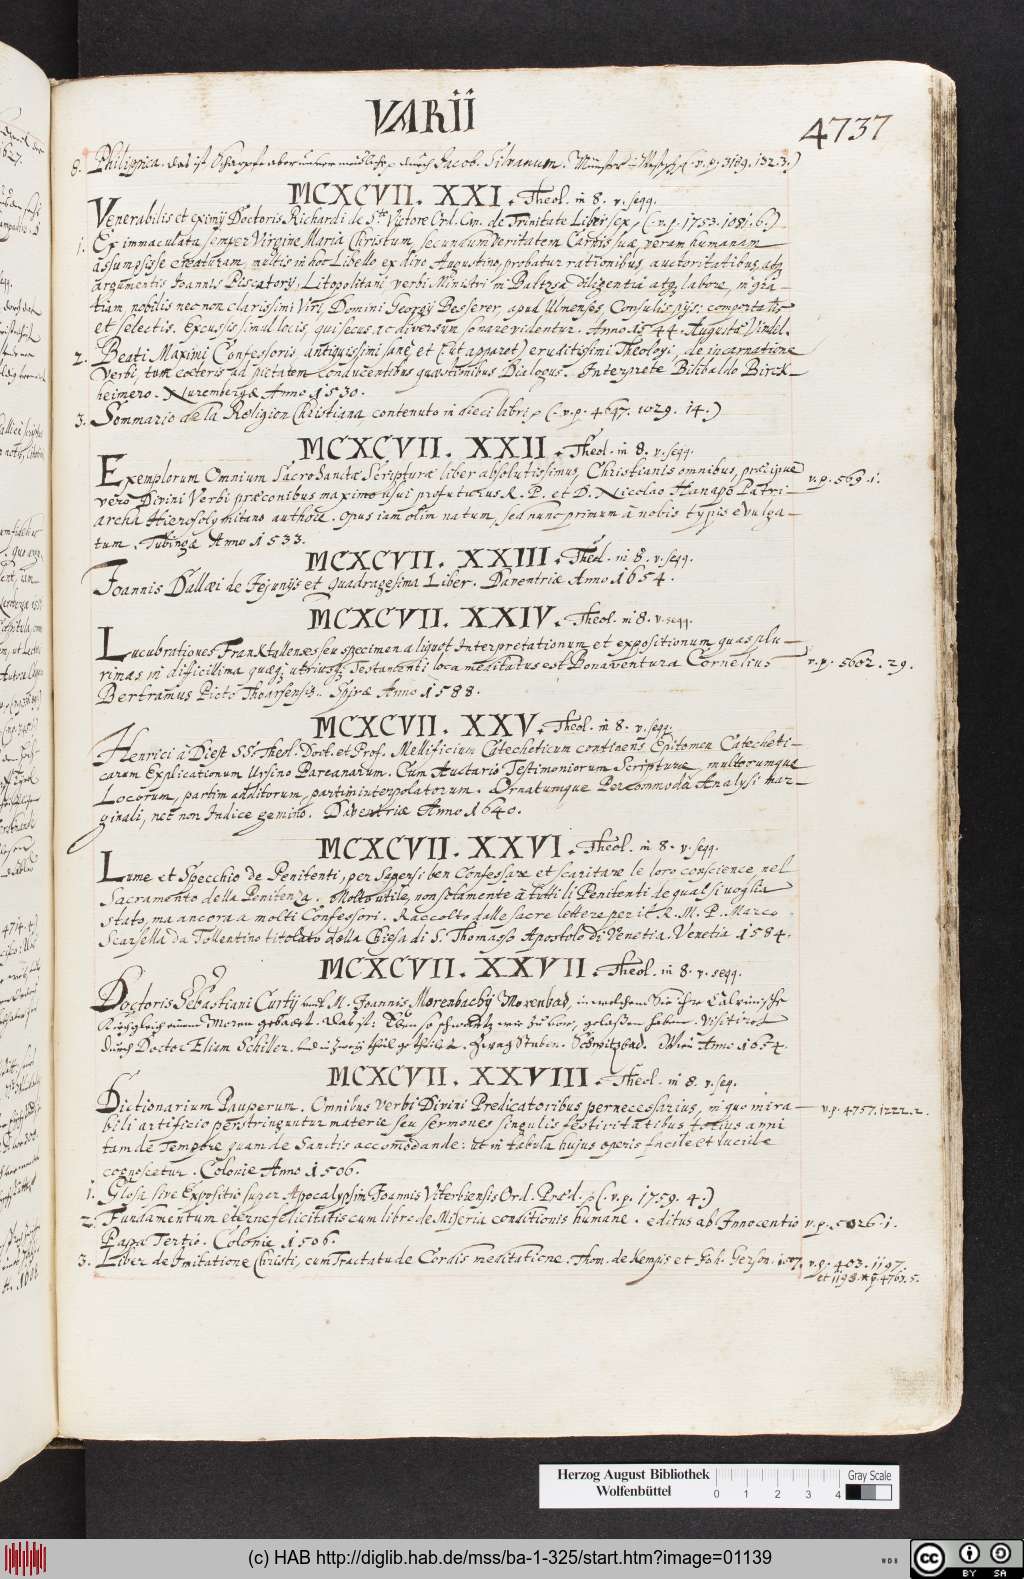 VARII
4737
8. Philippica. das ist durch Jacob. Silvanum. v. p. 3189. 132.3.)
MCXCVII. XXI. Theol. in 8. v. seqq.
Venerabilis et eximij Doctoris Richardi de Scto Victore Ord. Can. de Trinitate Libri sex (v. p. 1753. 1081. 6.)
1. Ex immaculata semper Virgine Maria Christum secundum veritatem Carnis suæ, veram humanam
assumpsisse creaturam, multis in hoc Libello ex divo Augustino, probatur rationibus, auctoritatibus, atq
argumentis Joannis Piscatorij, Litopolitani verbi Ministri in diligentia atq labore, in gra-
tiam nobilis nec non clarissimi Viri, Domini Georgij Besserer, apud Ulmenses, Consulis pijs: comportatis
et selectis. Excussis simul locis, qui secus ac diversum sonare videntur. Anno 1544. Augustæ Vindel.
2. Beati Maximi Confessoris, antiquissimi sanè et (ut apparet) eruditissimi Theologi, de incarnatione
Verbi, tum cæteris ad pietatem conducentibus quæstionibus Dialogus. Interprete Bilibaldo Birck-
heimero. Nurembergæ Anno 1530.
3. Sommario de la Religion Christiana, contenuto in dieci libri (v. p. 4647. 1029. 14.)
MCXCVII. XXII. Theol. in 8. v. seqq.
Exemplorum Omnium Sacrosanctæ Scripturæ liber absolutissimus, Christianis omnibus, præcipue
vero Divini Verbi præconibus maximo usui profuturus R. P. et D. Nicolao Hanapo Patri-
archa Hierosolymitano authore. opus iam olim natum, sed nunc primum à nobis typis evulga-
tum. Tubingæ Anno 1533.
v. p. 569. 1.
MCXCVII. XXIII. Theol. in 8. v. seqq.
Joannis Dallæi de Jejunijs et Quadragesima Liber. Daventriæ Anno 1654.
MCXCVII. XXIV. Theol. in 8. v. seqq.
Lucubrationes Franktallenses seu specimen aliquot Interpretationum et expositionum quas plu-
rimas in difficillima quæq utriusq Testamenti loca meditatus est Bonaventura Cornelius
Bertramus Picto Thoarsensis. Spiræ Anno 1588.
v. p. 5602. 29.
MCXCVII. XXV. Theol. in 8. v. seqq.
Henrici à Diest SS. Theol. Doct. et Prof. Mellificium Catecheticum continens Epitomen Catecheti-
carum Explicationum Ursino Pareanarum. Cum Auctario Testimoniorum Scripturæ, multorumque
Locorum, partim additorum, partim interpolatorum. Ornatumque Percommoda Analysi mar-
ginali, nec non Indice gemino. Daventriæ Anno 1640.
MCXCVII. XXVI. Theol. in 8. v. seqq.
Lume et Specchio de Penitenti, per sapersi ben Confessare et scaricare le loro conscience nel
Sacramento della Penitenza. Molto utile, non solamente à tutti li Penitenti de qual si voglia
stato, ma ancora a molti Confessori. Raccolto dalle sacre lettere per il R. M. P. Marco
Scarsella da Tollentino titolato della Chiesa di S. Thomasso Apostolo di Venetia. Venetia 1584.
MCXCVII. XXVII. Theol. in 8. v. seqq.
Doctoris Sebastiani Curtij und M. Joannis Morenbachij Morenbad, in welchem Sie ihre Calvinische
gebadet. Das ist: visitiret
durch Doctor Eliam Schiller. Wien Anno 1654.
MCXCVII. XXVIII. Theol. in 8. v. seq.
Dictionarium Pauperum. Omnibus verbi Divini Predicatoribus pernecessarius, in quo mira-
bili artificio perstringuntur materie seu sermones singulis festivitatibus totius anni
tam de Tempore quam de Sanctis accomodande: ut in tabula hujus operis facile et lucide
cognoscetur. Colonie Anno 1506.
v. p. 4757. 1222. 2.
1. Glosa sive Expositio super Apocalypsim Joannis Viterbiensis Ord. Præd. (v. p. 1759. 4.)
2. Fundamentum eterne felicitatis cum libro de Miseria conditionis humane. editus ab Innocentio
Papa Tertio. Colonie 1506.
v. p. 5026. 1.
3. Liber de Imitatione Christi, cum Tractatu de Cordis meditatione. Thom. de Kempis et Joh. Gerson. 1507.
v. p. 403. 1197.
et 1198. 4767. 5.
Herzog August Bibliothek
Wolfenbüttel
0 1 2 3 4
Gray Scale
(c) HAB http://diglib.hab.de/mss/ba-1-325/start.htm?image=01139
WDB
cc BY SA